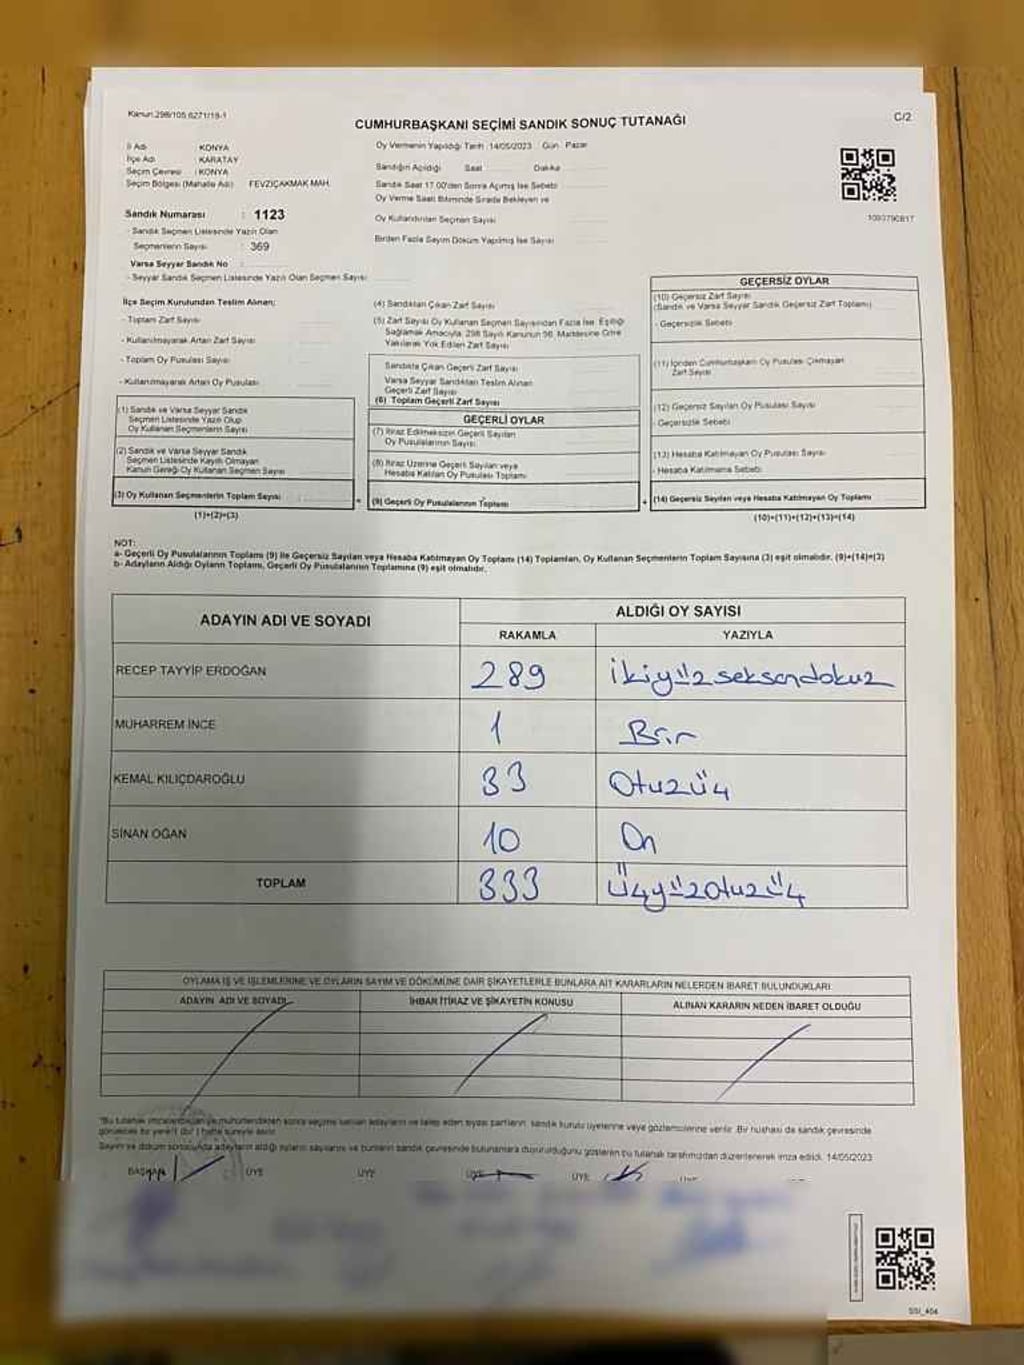 Kanun.298/105,6271/19-1
CUMHURBAŞKANI SEÇİMİ SANDIK SONUÇ TUTANAĞI
C/2
İl Adı : KONYA
İlçe Adı : KARATAY
Seçim Çevresi : KONYA
Seçim Bölgesi (Mahalle Adı) FEVZİÇAKMAK MAH.
Sandık Numarası : 1123
- Sandık Seçmen Listesinde Yazılı Olan
Seçmenlerin Sayısı : 369
Varsa Seyyar Sandık No :
- Seyyar Sandık Seçmen Listesinde Yazılı Olan Seçmen Sayısı
Oy Vermenin Yapıldığı Tarih :14/05/2023 Gün: Pazar
Sandığın Açıldığı Saat Dakika
Sandık Saat 17.00'den Sonra Açılmış İse Sebebi
Oy Verme Saati Bitiminde Sırada Bekleyen ve
Oy Kullandırılan Seçmen Sayısı
Birden Fazla Sayım Döküm Yapılmış İse Sayısı
İlçe Seçim Kurulundan Teslim Alınan;
- Toplam Zarf Sayısı
- Kullanılmayarak Artan Zarf Sayısı
- Toplam Oy Pusulası Sayısı
- Kullanılmayarak Artan Oy Pusulası
(1) Sandık ve Varsa Seyyar Sandık
Seçmen Listesinde Yazılı Olup
Oy Kullanan Seçmenlerin Sayısı
(2) Sandık ve Varsa Seyyar Sandık
Seçmen Listesinde Kayıtlı Olmayan
Kanun Gereği Oy Kullanan Seçmen Sayısı
(3) Oy Kullanan Seçmenlerin Toplam Sayısı
(1)+(2)=(3)
(4) Sandıktan Çıkan Zarf Sayısı
(5) Zarf Sayısı Oy Kullanan Seçmen Sayısından Fazla İse, Eşitliği
Sağlamak Amacıyla, 298 Sayılı Kanunun 98. Maddesine Göre
Yakılarak Yok Edilen Zarf Sayısı
Sandıkta Çıkan Geçerli Zarf Sayısı
Varsa Seyyar Sandıktan Teslim Alınan
Geçerli Zarf Sayısı
(6) Toplam Geçerli Zarf Sayısı
GEÇERLİ OYLAR
(7) İtiraz Edilmeksizin Geçerli Sayılan
Oy Pusulalarının Sayısı
(8) İtiraz Üzerine Geçerli Sayılan veya
Hesaba Katılan Oy Pusulası Toplamı
(9) Geçerli Oy Pusulalarının Toplamı
+
1093790817
GEÇERSİZ OYLAR
(10) Geçersiz Zarf Sayısı
(Sandık ve Varsa Seyyar Sandık Geçersiz Zarf Toplamı)
- Geçersizlik Sebebi
(11) İçinden Cumhurbaşkanı Oy Pusulası Çıkmayan
Zarf Sayısı
(12) Geçersiz Sayılan Oy Pusulası Sayısı
- Geçersizlik Sebebi
(13) Hesaba Katılmayan Oy Pusulası Sayısı
- Hesaba Katılmama Sebebi
(14) Geçersiz Sayılan veya Hesaba Katılmayan Oy Toplamı
(10)+(11)+(12)+(13)=(14)
NOT:
a- Geçerli Oy Pusulalarının Toplamı (9) ile Geçersiz Sayılan veya Hesaba Katılmayan Oy Toplamı (14) Toplamları, Oy Kullanan Seçmenlerin Toplam Sayısına (3) eşit olmalıdır. (9)+(14)=(3)
b- Adayların Aldığı Oyların Toplamı, Geçerli Oy Pusulalarının Toplamına (9) eşit olmalıdır.
ADAYIN ADI VE SOYADI
ALDIĞI OY SAYISI
RAKAMLA YAZIYLA
RECEP TAYYİP ERDOĞAN 289 ikiyüzseksendokuz
MUHARREM İNCE 1 Bir
KEMAL KILIÇDAROĞLU 33 Otuzüç
SİNAN OĞAN 10 On
TOPLAM 333 Üçyüzotuzüç
OYLAMA İŞ VE İŞLEMLERİNE VE OYLARIN SAYIM VE DÖKÜMÜNE DAİR ŞİKAYETLERLE BUNLARA AİT KARARLARIN NELERDEN İBARET BULUNDUKLARI
ADAYIN ADI VE SOYADI İHBAR İTİRAZ VE ŞİKAYETİN KONUSU ALINAN KARARIN NEDEN İBARET OLDUĞU
*Bu tutanak imzalandıktan ve mühürlendikten sonra seçime katılan adayların ve talep eden siyasi partilerin, sandık kurulu üyelerine veya gözlemcilerine verilir. Bir nüshası da sandık çevresinde
görülebilir bir yere (bir) hafta süreyle asılır.
Sayım ve döküm sonucunda adayların aldığı oyların sayılarını ve bunların sandık çevresinde bulunanlara duyurulduğunu gösteren bu tutanak tarafımızdan düzenlenerek imza edildi. 14/05/2023
BAŞKAN ÜYE ÜYE ÜYE ÜYE
SSI_404